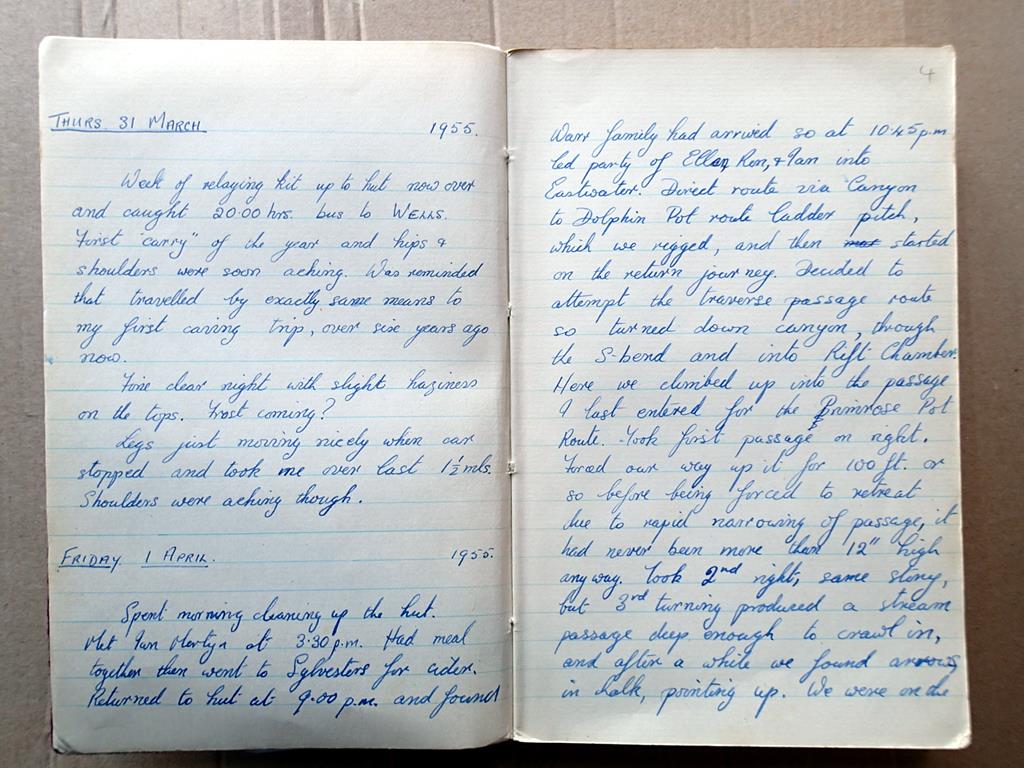 THURS. 31 MARCH 1955.
Week of relaying kit up to hut now over
and caught 20.00 hrs. bus to WELLS.
First "carry" of the year and hips &
shoulders were soon aching. Was reminded
that travelled by exactly same means to
my first caving trip, over six years ago
now.
Fine clear night with slight haziness
on the tops. Frost coming?
Legs just moving nicely when car
stopped and took me over last 1½ mls.
Shoulders were aching though.
FRIDAY. 1 APRIL. 1955.
Spent morning cleaning up the hut.
Met Ian at 3.30 p.m. Had meal
together then went to Sylvesters for cider.
Returned to hut at 9.00 p.m. and found
4
Warr family had arrived so at 10.45 p.m
led party of Ron, & Ian into
Eastwater. Direct route via Canyon
to Dolphin Pot route ladder pitch,
which we rigged, and then started
on the return journey. Decided to
attempt the traverse passage route
so turned down canyon, through
the S-bend and into Rift Chamber.
Here we climbed up into the passage
I last entered for the Primrose Pot
Route. Took first passage on right.
Forced our way up it for 100 ft. or
so before being forced to retreat
due to rapid narrowing of passage, it
had never been more than 12" high
anyway. Took 2nd right, same story,
but 3rd turning produced a stream
passage deep enough to crawl in,
and after a while we found arrows
in chalk, pointing up. We were on the